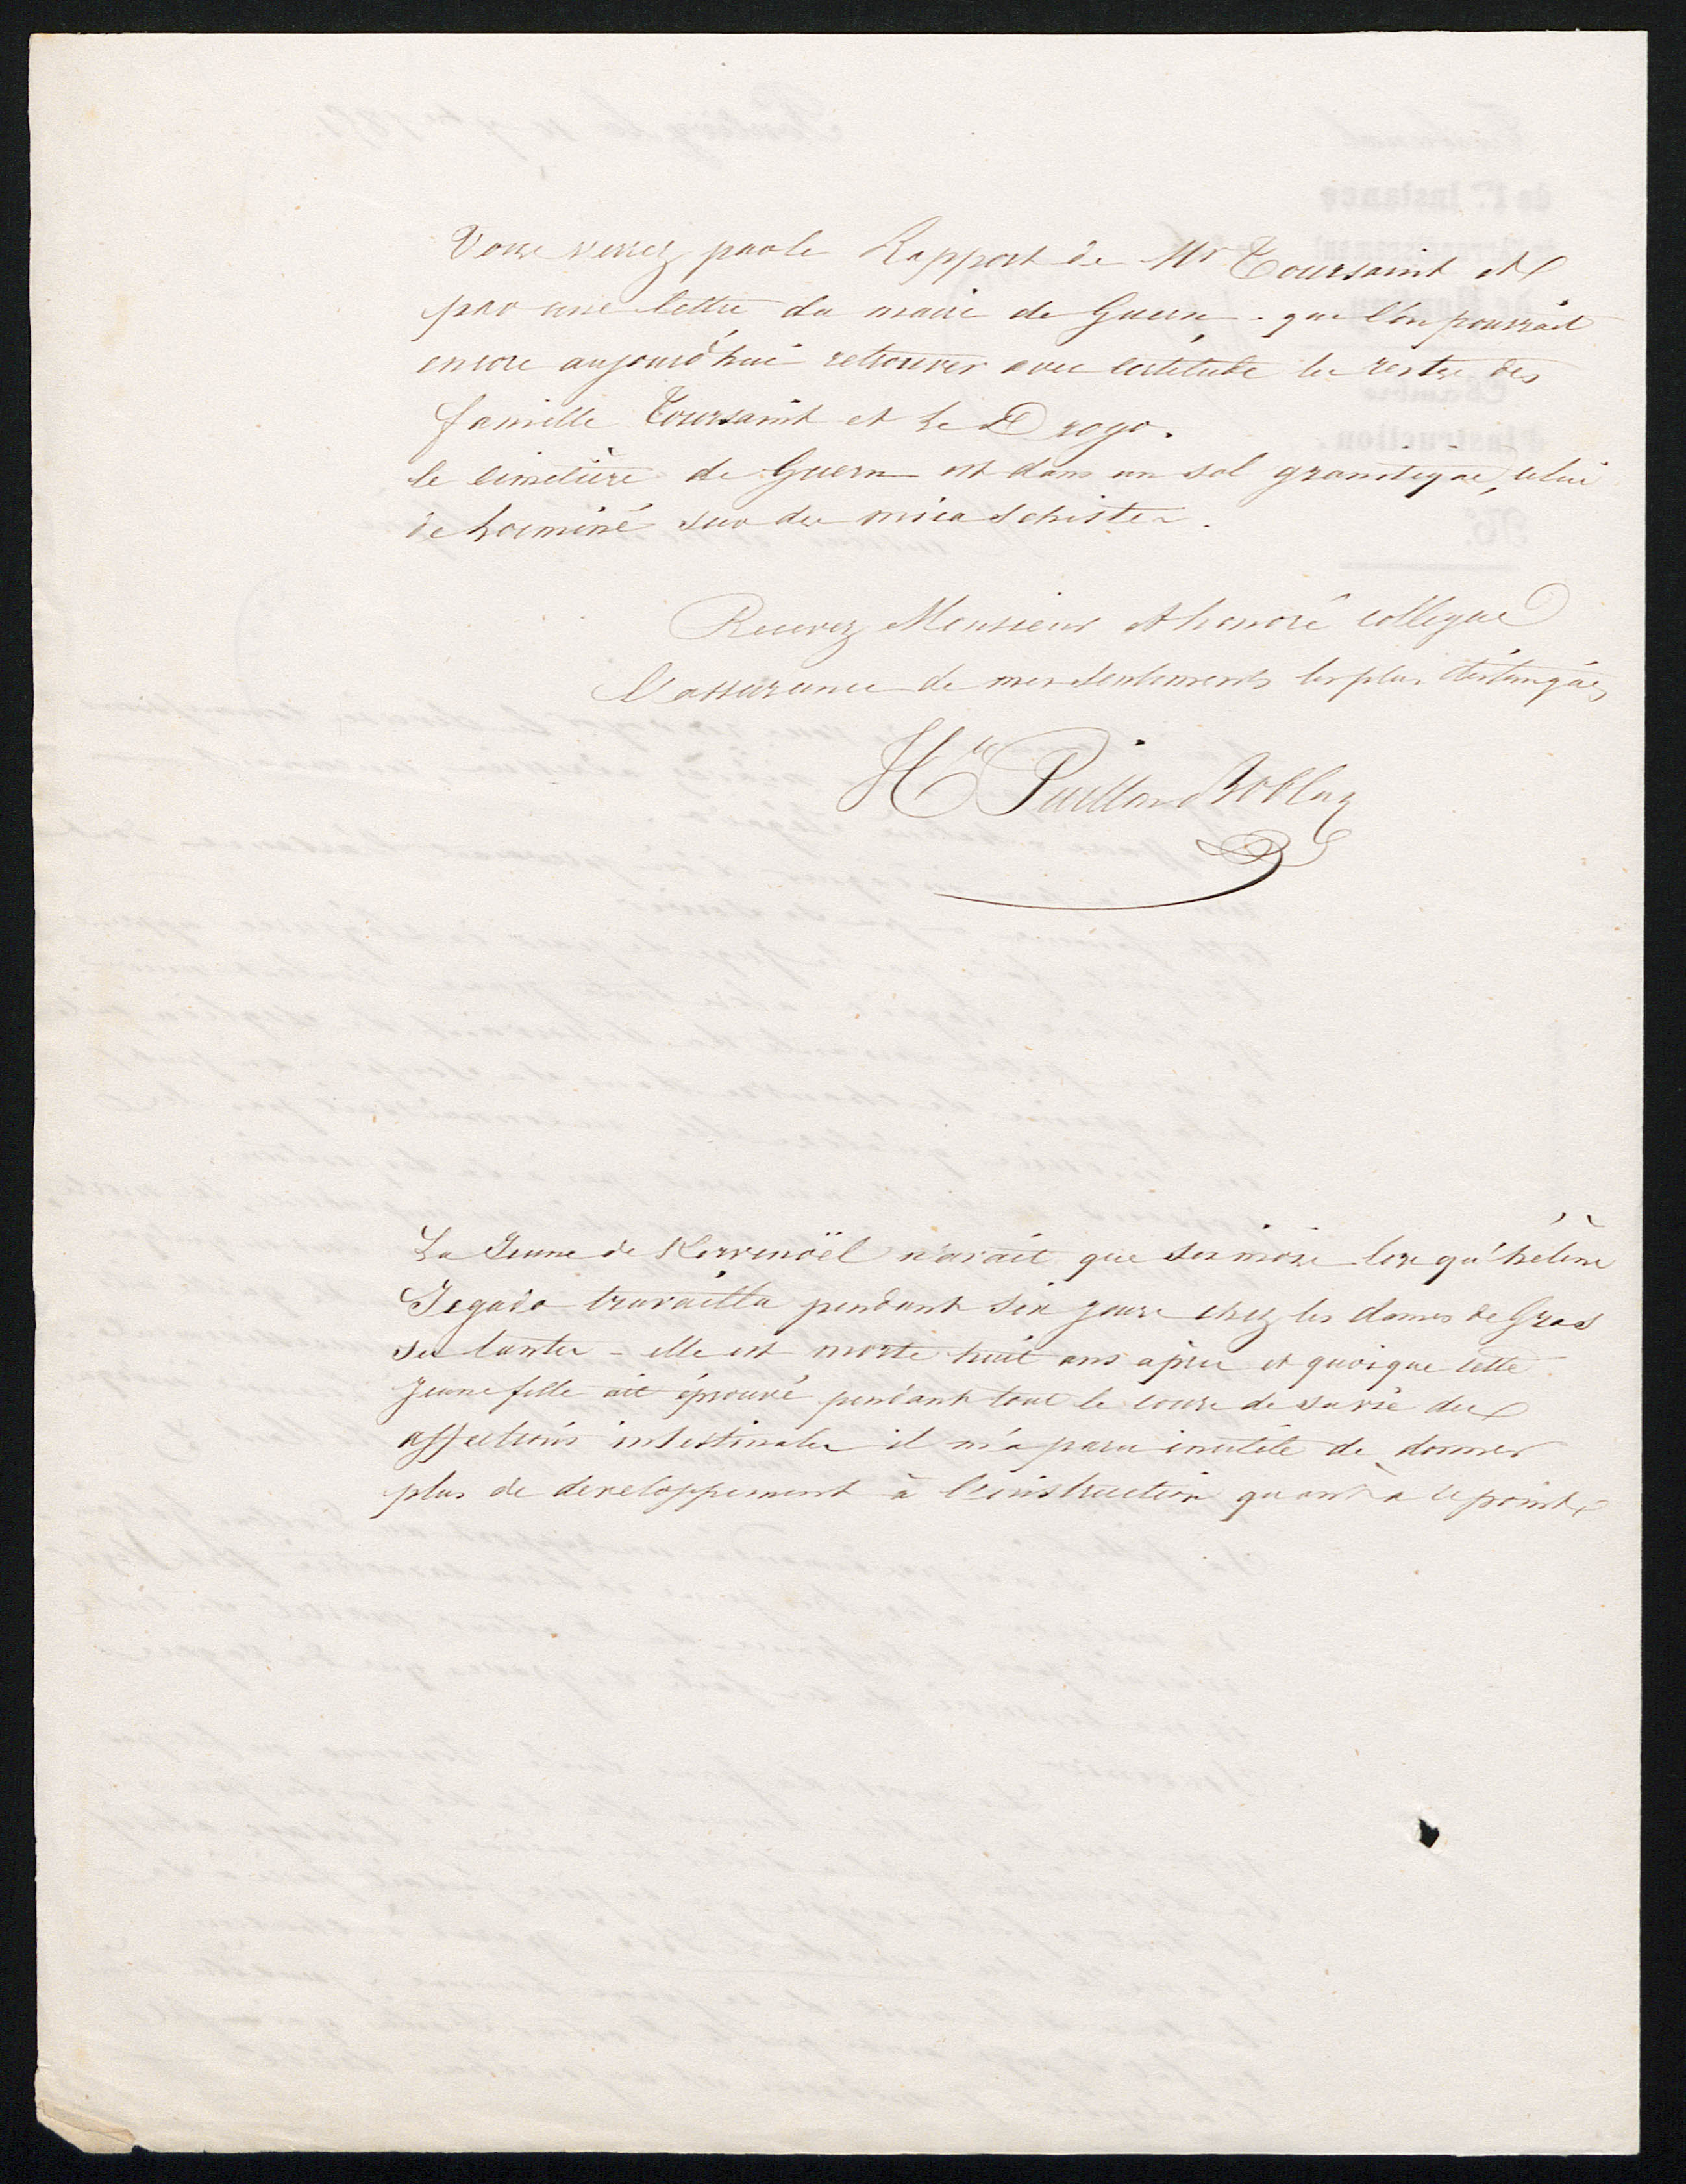 Vous verrez par le Rapport de Mr Toursaint et
par une lettre du maire de Guern - que l'on pourrait
encore aujourd'hui retrouver avec certitude les restes des
famille Toursaint et Le Drogo.
le cimetière de Guern est dans un sol granitique, celui
de Locminé sur des micaschistes.
Recevez Monsieur et honoré collegue
l'assurance de mes sentiments les plus distingués
Hte Puillon Boblay
La Jeune de Kervenoël n'avait que six mois lorsqu'hélène
Jegado travailla pendant six jours chez les dames de Gras
ses tantes - elle est morte huit ans après et quoique cette
jeune fille ait éprouvé pendant tout le cours de sa vie des
affections intestinales il m'a paru inutile de donner
plus de developpement à l'instruction quant à ce point